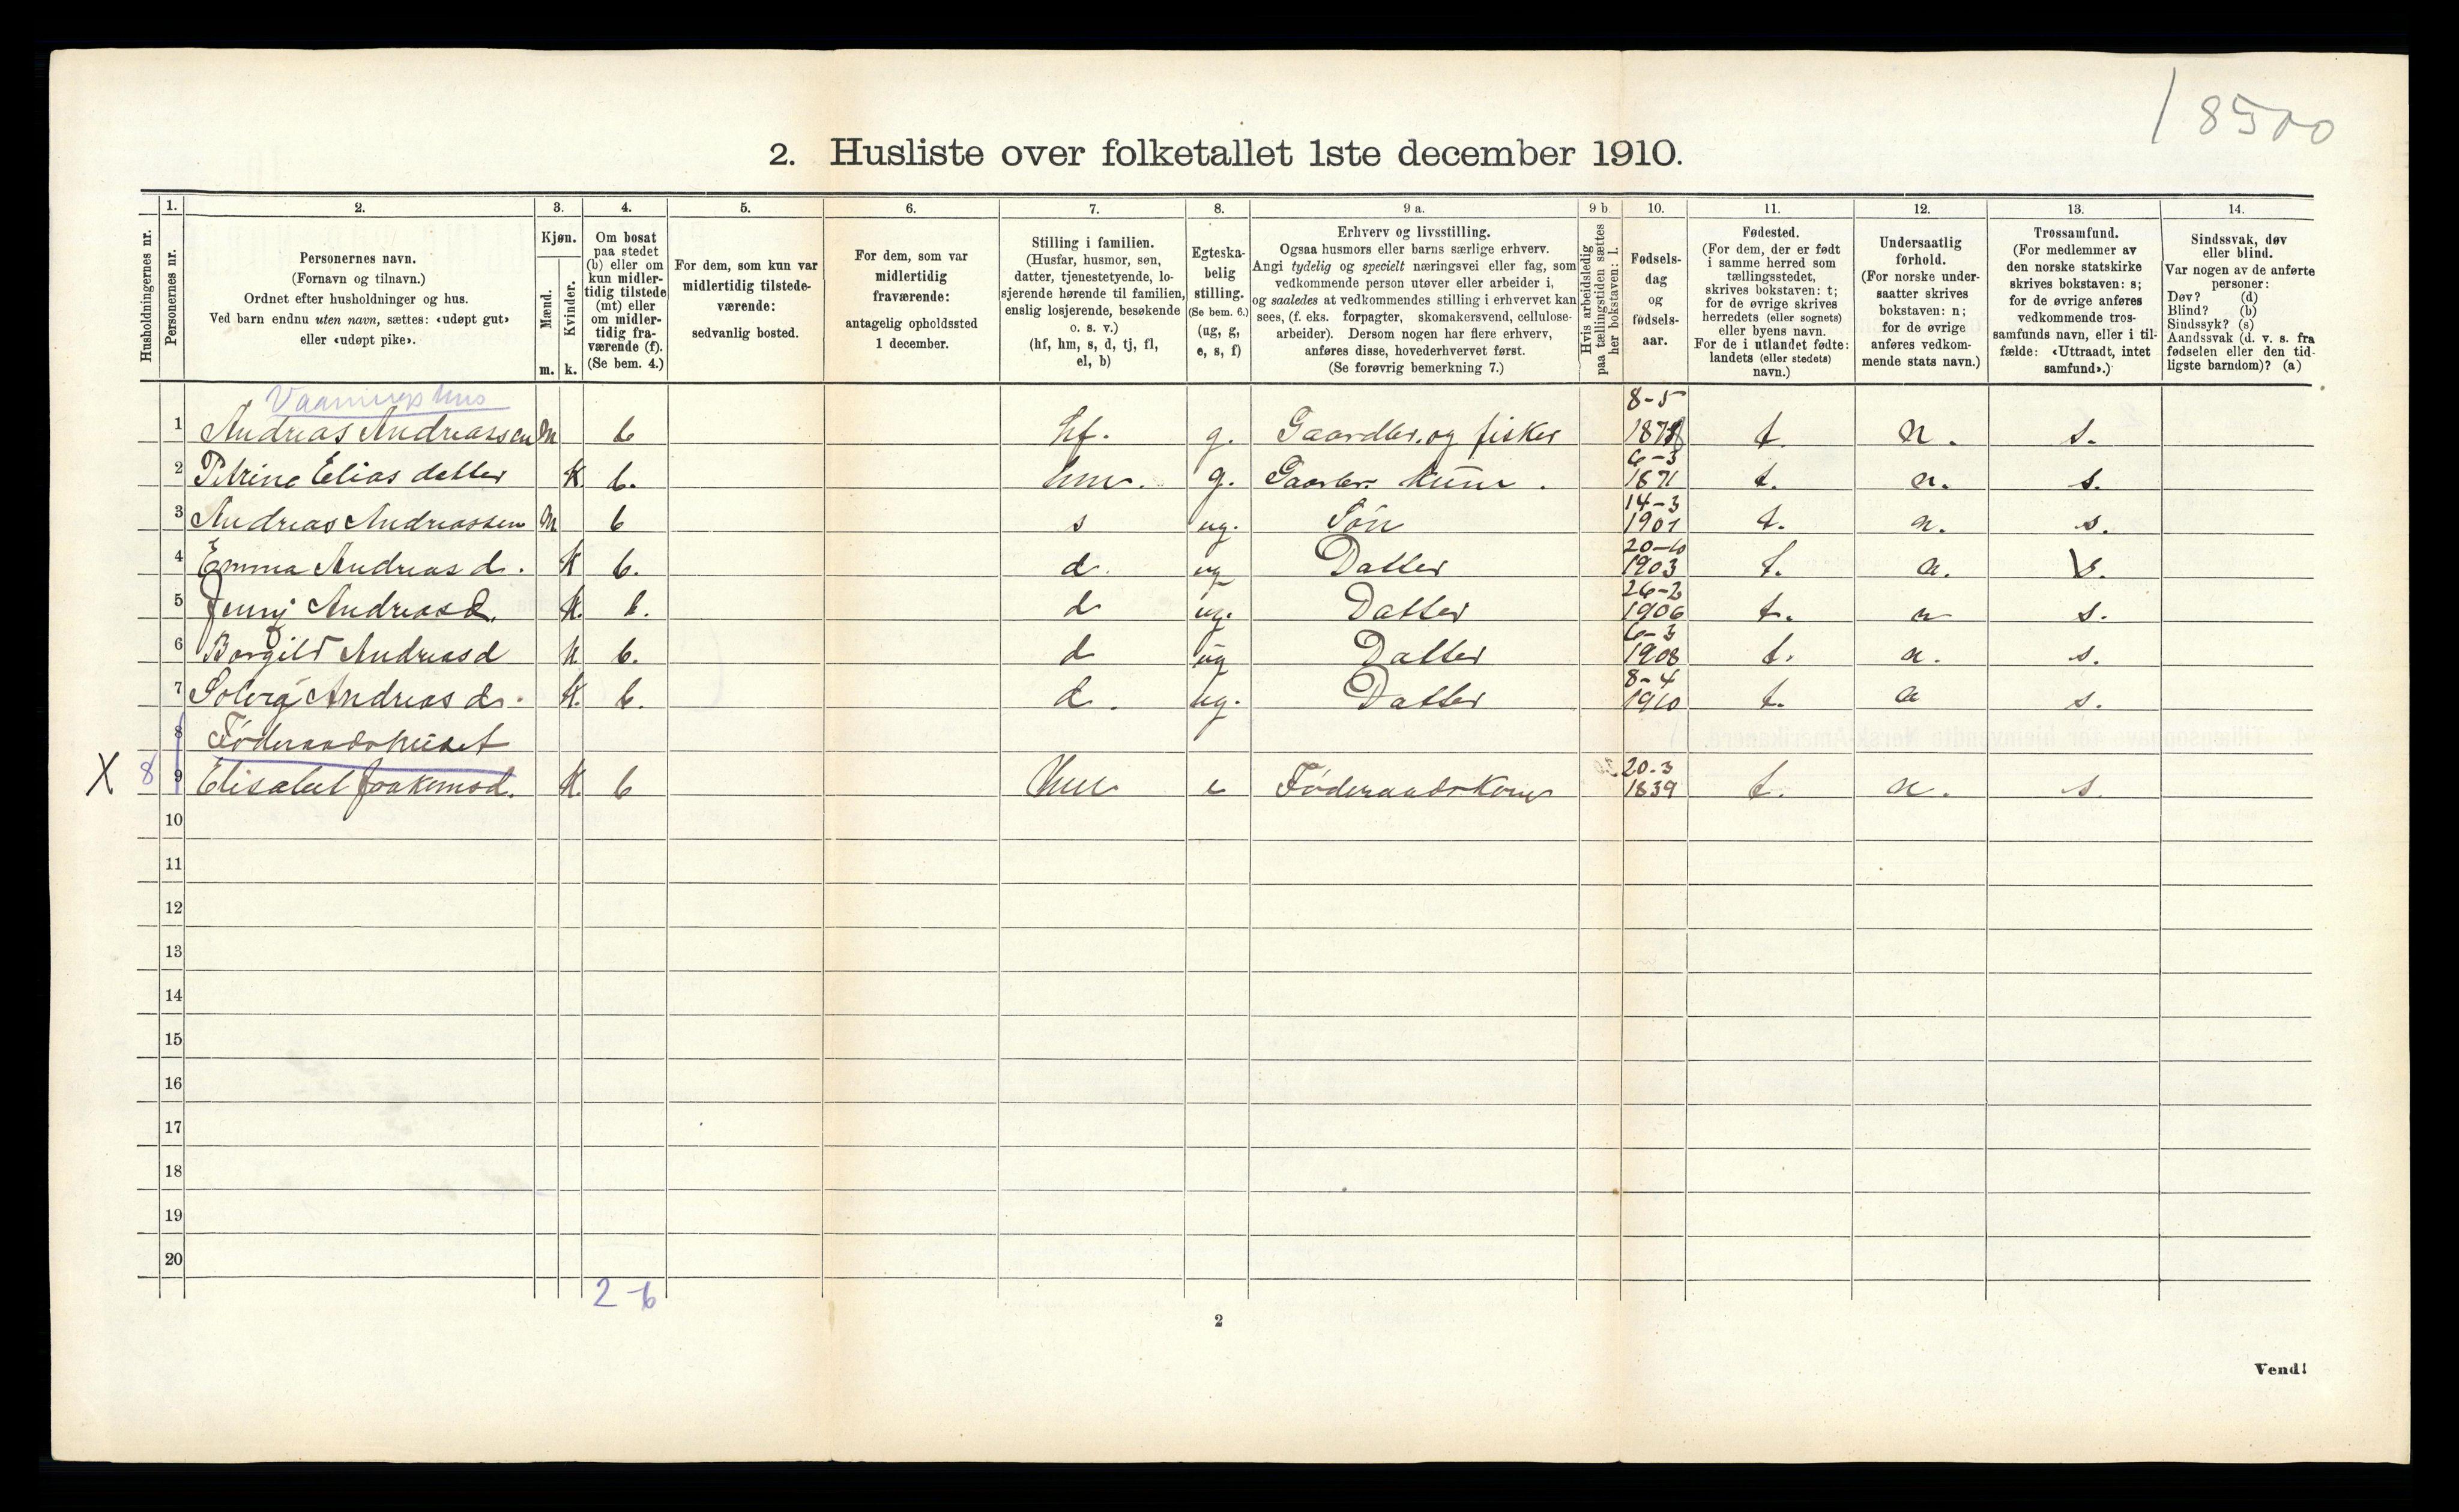 / 8500
2. Husliste over folketallet 1ste december 1910.
Husholdningernes nr.
1.
Personernes nr.
2.
Personernes navn.
(Fornavn og tilnavn.)
Ordnet efter husholdninger og hus.
Ved barn endnu uten navn, sættes: «udøpt gut»
eller «udøpt pike».
3.
Kjøn.
Mænd.
Kvinder.
m. k.
4.
Om bosat
paa stedet
(b) eller om
kun midler-
tidig tilstede
(mt) eller
om midler-
tidig fra-
værende (f).
(Se bem. 4.)
5.
For dem, som kun var
midlertidig tilstede-
værende:
sedvanlig bosted.
6.
For dem, som var
midlertidig
fraværende:
antagelig opholdssted
1 december.
7.
Stilling i familien.
(Husfar, husmor, søn,
datter, tjenestetyende, lo-
sjerende hørende til familien,
enslig losjerende, besøkende
o. s. v.)
(hf, hm, s, d, tj, fl,
el, b)
8.
Egteska-
belig
stilling.
(Se bem. 6.)
(ug, g,
e, s, f)
9 a.
Erhverv og livsstilling.
Ogsaa husmors eller barns særlige erhverv.
Angi tydelig og specielt næringsvei eller fag, som
vedkommende person utøver eller arbeider i,
og saaledes at vedkommendes stilling i erhvervet kan
sees, (f. eks. forpagter, skomakersvend, cellulose-
arbeider). Dersom nogen har flere erhverv,
anføres disse, hovederhvervet først.
(Se forøvrig bemerkning 7.)
9 b.
Hvis arbeidsledig
paa tællingstiden sættes
her bokstaven: l.
10.
Fødsels-
dag
og
fødsels-
aar.
11.
Fødested.
(For dem, der er født
i samme herred som
tællingsstedet,
skrives bokstaven: t;
for de øvrige skrives
herredets (eller sognets)
eller byens navn.
For de i utlandet fødte:
landets (eller stedets)
navn.)
12.
Undersaatlig
forhold.
(For norske under-
saatter skrives
bokstaven: n;
for de øvrige
anføres vedkom-
mende stats navn.)
13.
Trossamfund.
(For medlemmer av
den norske statskirke
skrives bokstaven: s;
for de øvrige anføres
vedkommende tros-
samfunds navn, eller i til-
fælde: «Uttraadt, intet
samfund».)
14.
Sindssvak, døv
eller blind.
Var nogen av de anførte
personer:
Døv? (d)
Blind? (b)
Sindssyk? (s)
Aandssvak (d. v. s. fra
fødselen eller den tid-
ligste barndom)? (a)
Vaaningshus
1 Andreas Andreassen m b hf. g. Gaardbr. og fisker 8-5 1878 t. n. s.
2 Petrine Elias datter K b. hm. g. Gaardbr. kune. 6-3 1871 t. n. s.
3 Andreas Andreassen m b s ug. Søn 14-3 1901 t. n. s.
4 Emma Andreas d. K b. d. ug Datter 20-10 1903 t. n. s.
5 Jenny Andreasd. K. b. d ug. Datter 26-2 1906 t. n s.
6 Borgild Andreasd K b. d ug Datter 6-3 1908 t. n. s.
7 Solvig Andreas d. K. b. d. ug. Datter 8-4 1910 t. n s.
8 Føderaadshuset
X 8 9 Elisabet Joakimsd. K. b hm e Føderaadskone 20.3 1839 t. n. s.
10
11
12
13
14
15
16
17
18
19
20
2-6
2
Vend!